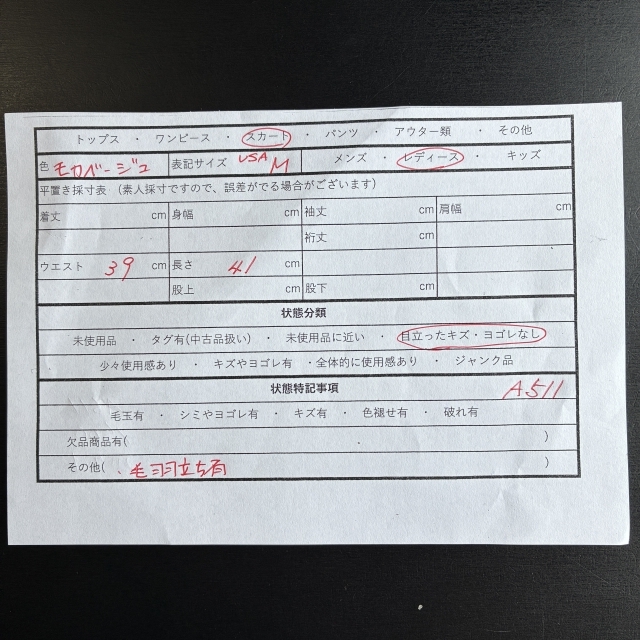 トップス ・ ワンピース ・ スカート ・ パンツ ・ アウター類 ・ その他
色 モカベージュ 表記サイズ USA M メンズ ・ レディース ・ キッズ
平置き採寸表 (素人採寸ですので、誤差がでる場合がございます)
着丈 cm 身幅 cm 袖丈 cm 肩幅 cm
裄丈 cm
ウエスト 39 cm 長さ 41 cm
股上 cm 股下 cm
状態分類
未使用品 ・ タグ有(中古品扱い) ・ 未使用品に近い ・ 目立ったキズ・ヨゴレなし
少々使用感あり ・ キズやヨゴレ有 ・全体的に使用感あり ・ ジャンク品
状態特記事項 A511
毛玉有 ・ シミやヨゴレ有 ・ キズ有 ・ 色褪せ有 ・ 破れ有
欠品商品有( . )
その他( 、毛羽立ち有 )